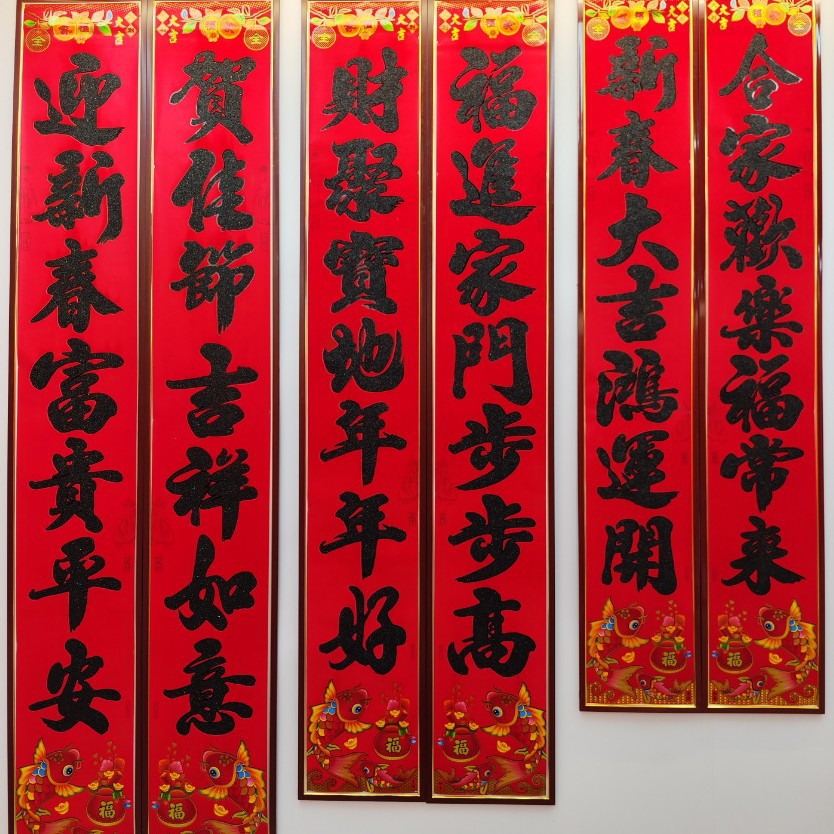 迎新春富貴平安
賀佳節吉祥如意
財聚寶地年年好
福進家門步步高
新春大吉鴻運開
合家歡樂福常來
大吉
大吉
大吉
大吉
大吉
大吉
福
福
福
福
福
福